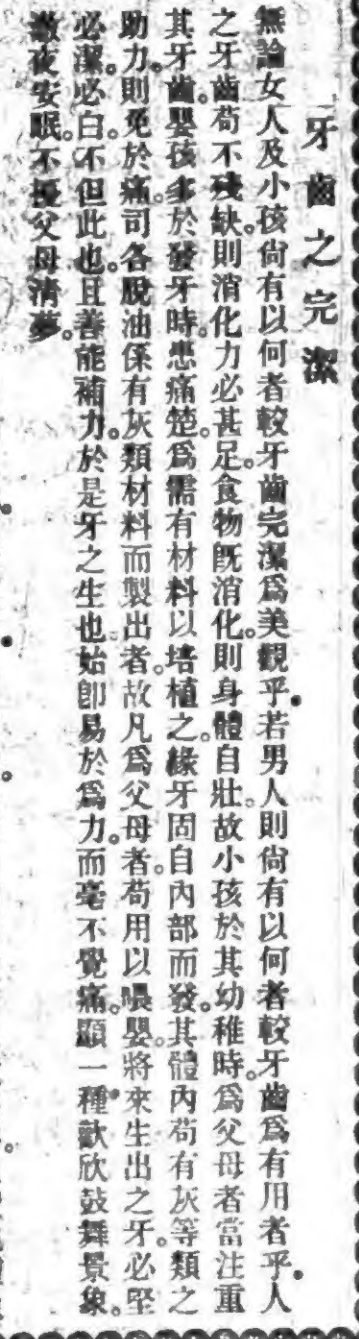 牙齒之完潔
無論女人及小孩尙有以何者較牙齒完潔爲美觀乎。若男人則尙有以何者較牙齒爲有用者乎。人
之牙齒苟不殘缺。則消化力必甚足。食物旣消化。則身體自壯。故小孩於其幼稚時。爲父母者當注重
其牙齒。嬰孩多於發牙時。患痛楚。爲需有材料以培植之。緣牙固自內部而發。其體內苟有灰等類之
助力。則免於痛。司各脫油係有灰類材料而製出者。故凡爲父母者。苟用以喂嬰。將來生出之牙。必堅
必潔。必白。不但此也。且善能補力。於是牙之生也。始卽易於爲力。而毫不覺痛。顯一種歡欣鼓舞景象。
澈夜安眠。不擾父母清夢。